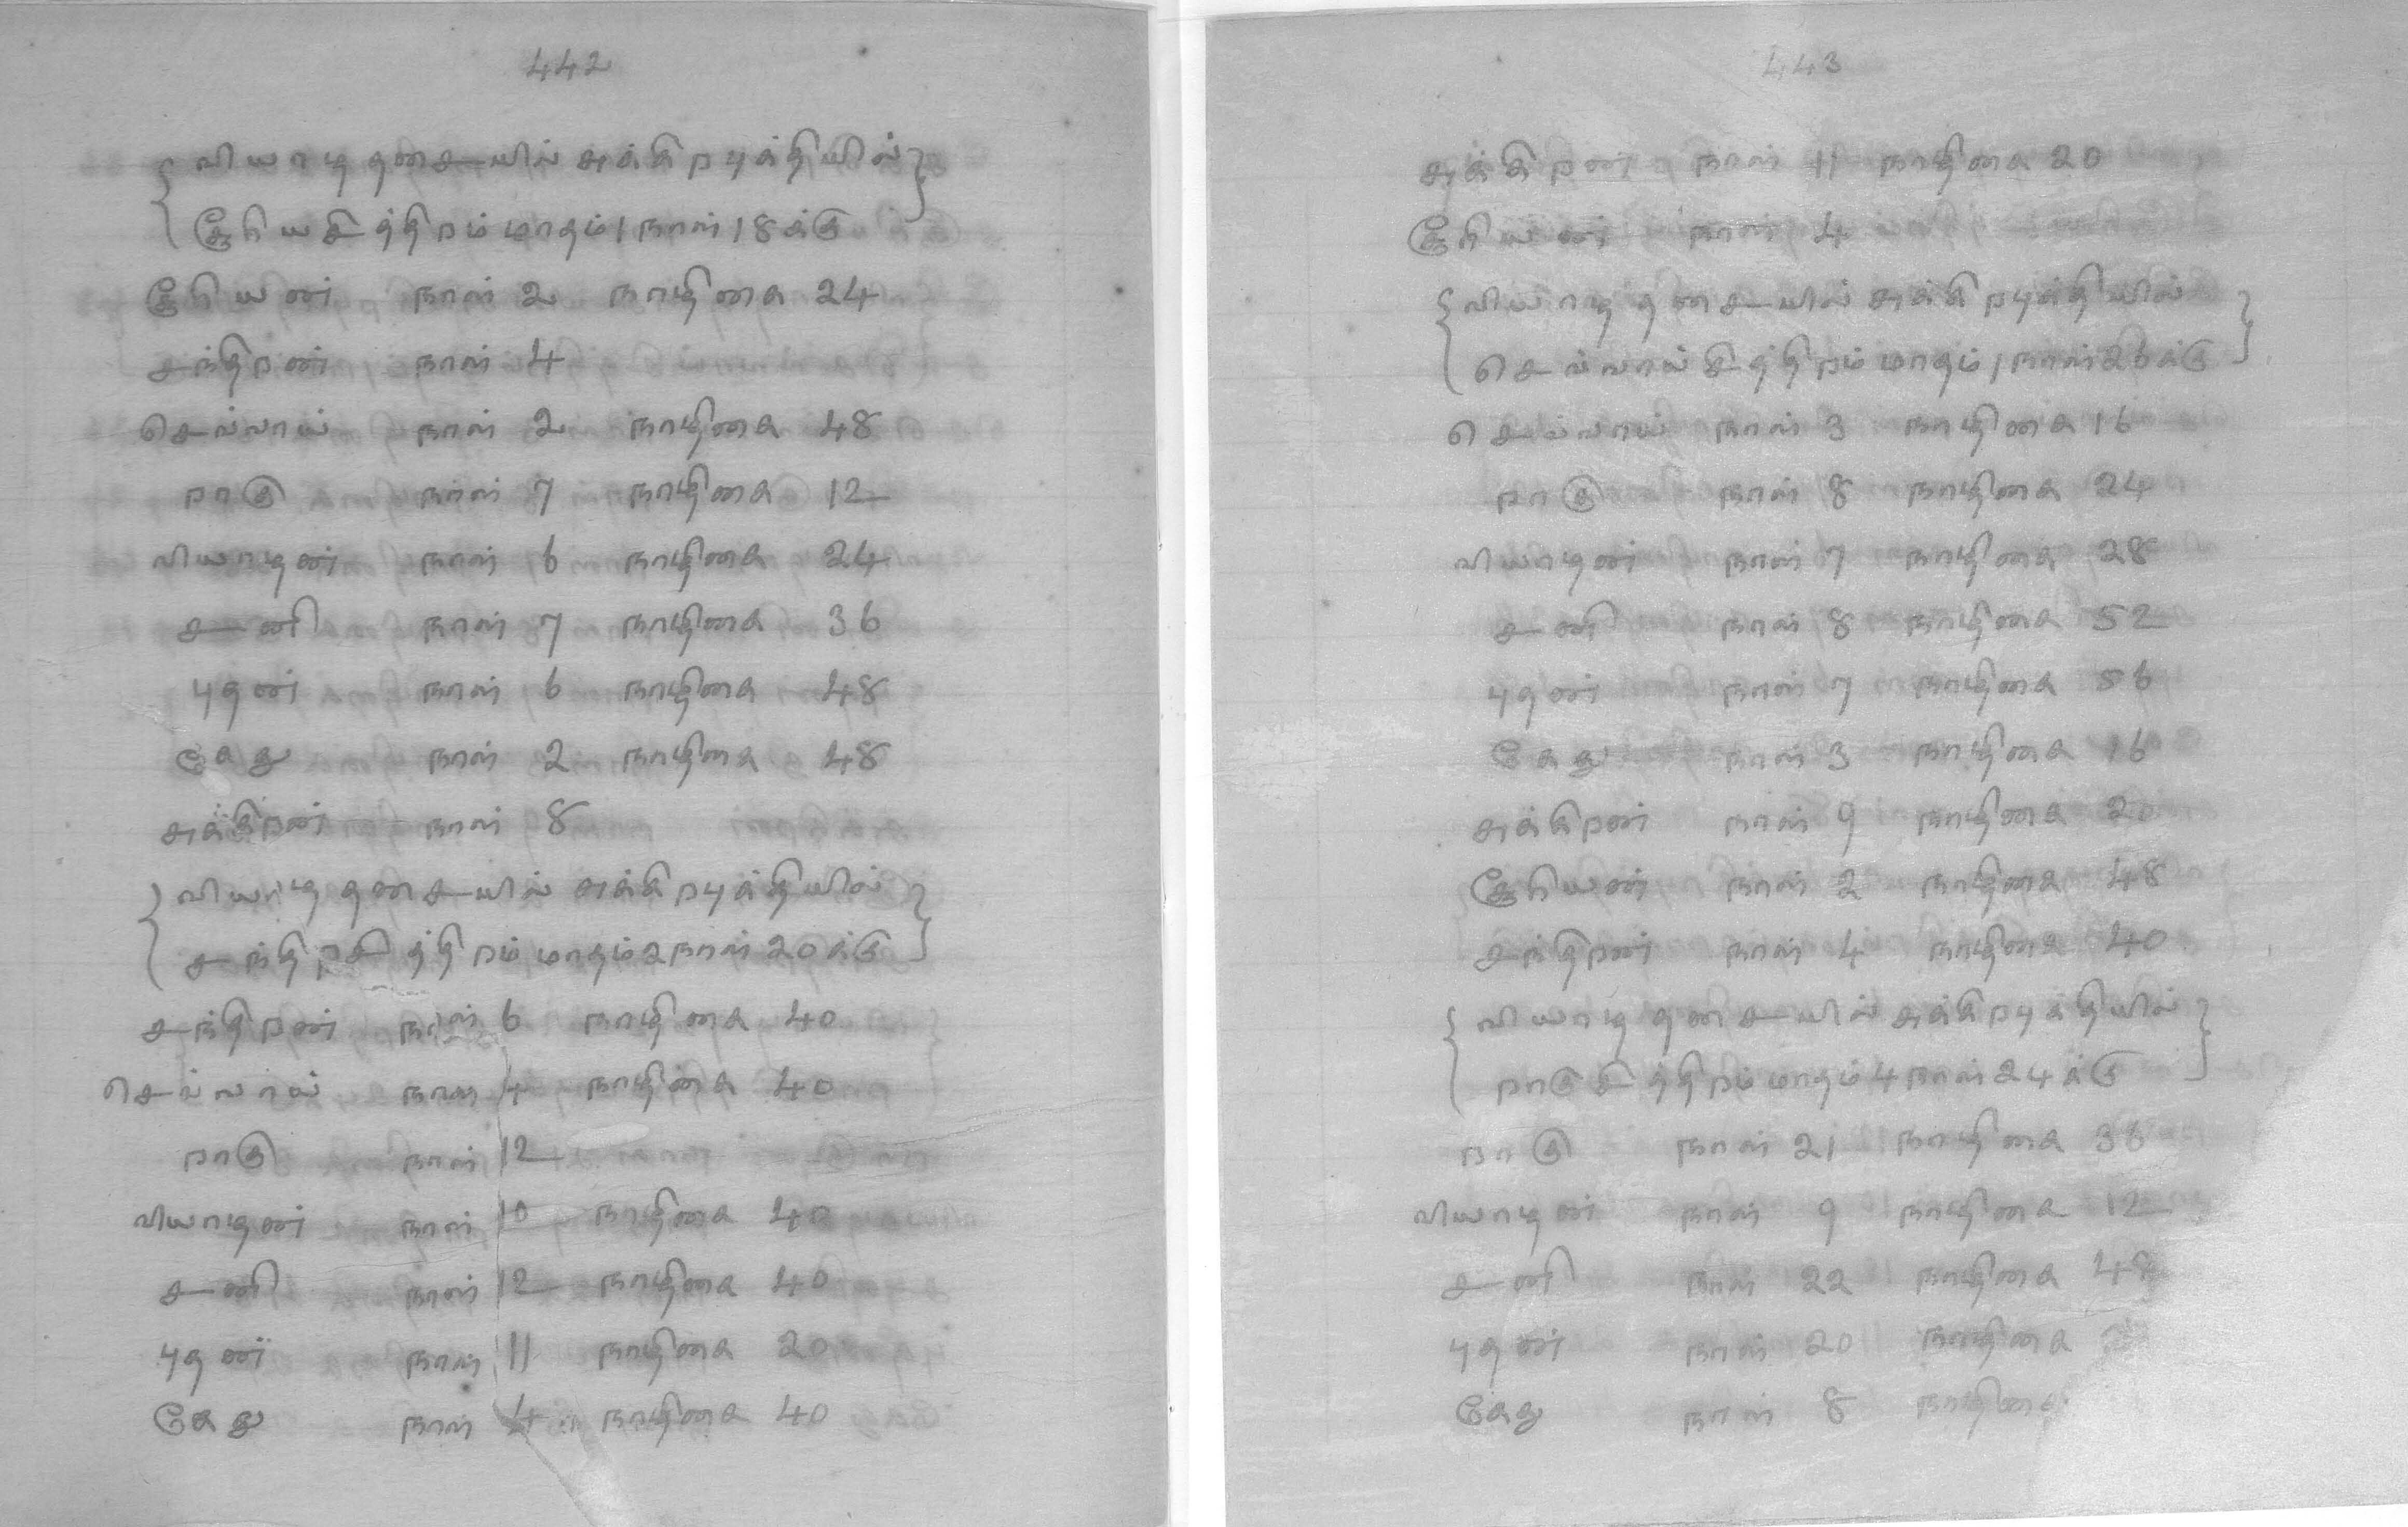 442
{வியாழ தசையில் சுக்கிர புக்தியில்}
{சூரிய சித்திரம் மாதம் 1 நாள் 18க்கு}
சூரியன் நாள் 2 நாழிகை 24
சந்திரன் நாள் 4
செவ்வாய் நாள் 2 நாழிகை 48
ராகு நாள் 7 நாழிகை 12
வியாழன் நாள் 6 நாழிகை 24
சனி நாள் 7 நாழிகை 36
புதன் நாள் 6 நாழிகை 48
கேது நாள் 2 நாழிகை 48
சுக்கிரன் நாள் 8
{வியாழ தசையில் சுக்கிர புக்தியில்}
{சந்திர சித்திரம் மாதம் 2 நாள் 20க்கு}
சந்திரன் நாள் 6 நாழிகை 40
செவ்வாய் நாள் 4 நாழிகை 40
ராகு நாள் 12
வியாழன் நாள் 10 நாழிகை 40
சனி நாள் 12 நாழிகை 40
புதன் நாள் 11 நாழிகை 20
கேது நாள் 4 நாழிகை 40
443
சுக்கிரன் நாள் 11 நாழிகை 20
சூரியன் நாள் 4
{வியாழ தசையில் சுக்கிர புக்தியில்}
{செவ்வாய் சித்திரம் மாதம் 1 நாள் 26க்கு}
செவ்வாய் நாள் 3 நாழிகை 16
ராகு நாள் 8 நாழிகை 24
வியாழன் நாள் 7 நாழிகை 28
சனி நாள் 8 நாழிகை 52
புதன் நாள் 7 நாழிகை 56
கேது நாள் 3 நாழிகை 16
சுக்கிரன் நாள் 9 நாழிகை 20
சூரியன் நாள் 2 நாழிகை 48
சந்திரன் நாள் 4 நாழிகை 40
{வியாழ தசையில் சுக்கிர புக்தியில்}
{ராகு சித்திரம் மாதம் 4 நாள் 24க்கு}
ராகு நாள் 21 நாழிகை 36
வியாழன் நாள் 9 நாழிகை 12
சனி நாள் 22 நாழிகை 48
புதன் நாள் 20 நாழிகை
கேது நாள் 8 நாழிகை